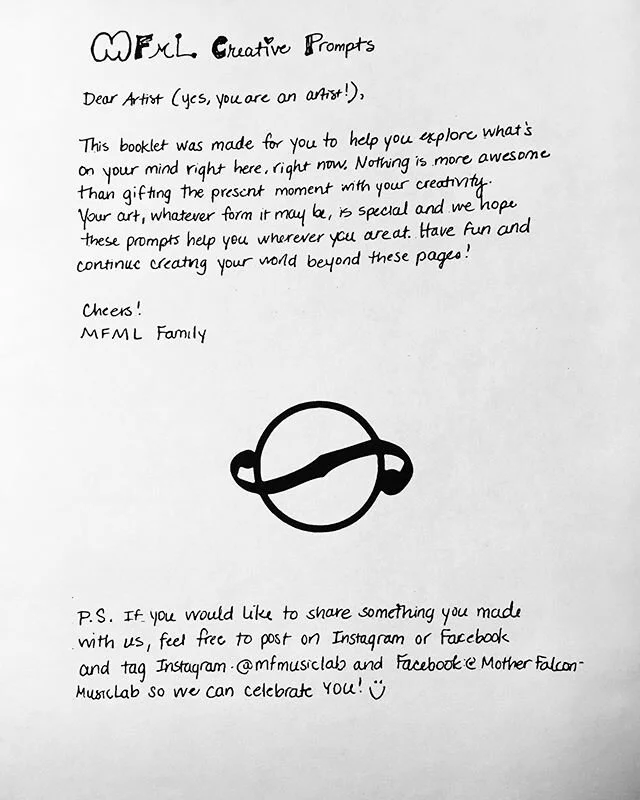 MFML Creative Prompts
Dear Artist (yes, you are an artist!),
This booklet was made for you to help you explore what's
on your mind right here, right now. Nothing is more awesome
than gifting the present moment with your creativity.
Your art, whatever form it may be, is special and we hope
these prompts help you wherever you are at. Have fun and
continue creating your world beyond these pages!
Cheers!
MFML Family
P.S. If you would like to share something you made
with us, feel free to post on Instagram or Facebook
and tag Instagram @mfmusiclab and Facebook @ Mother Falcon-
MusicLab so we can celebrate YOU! :)